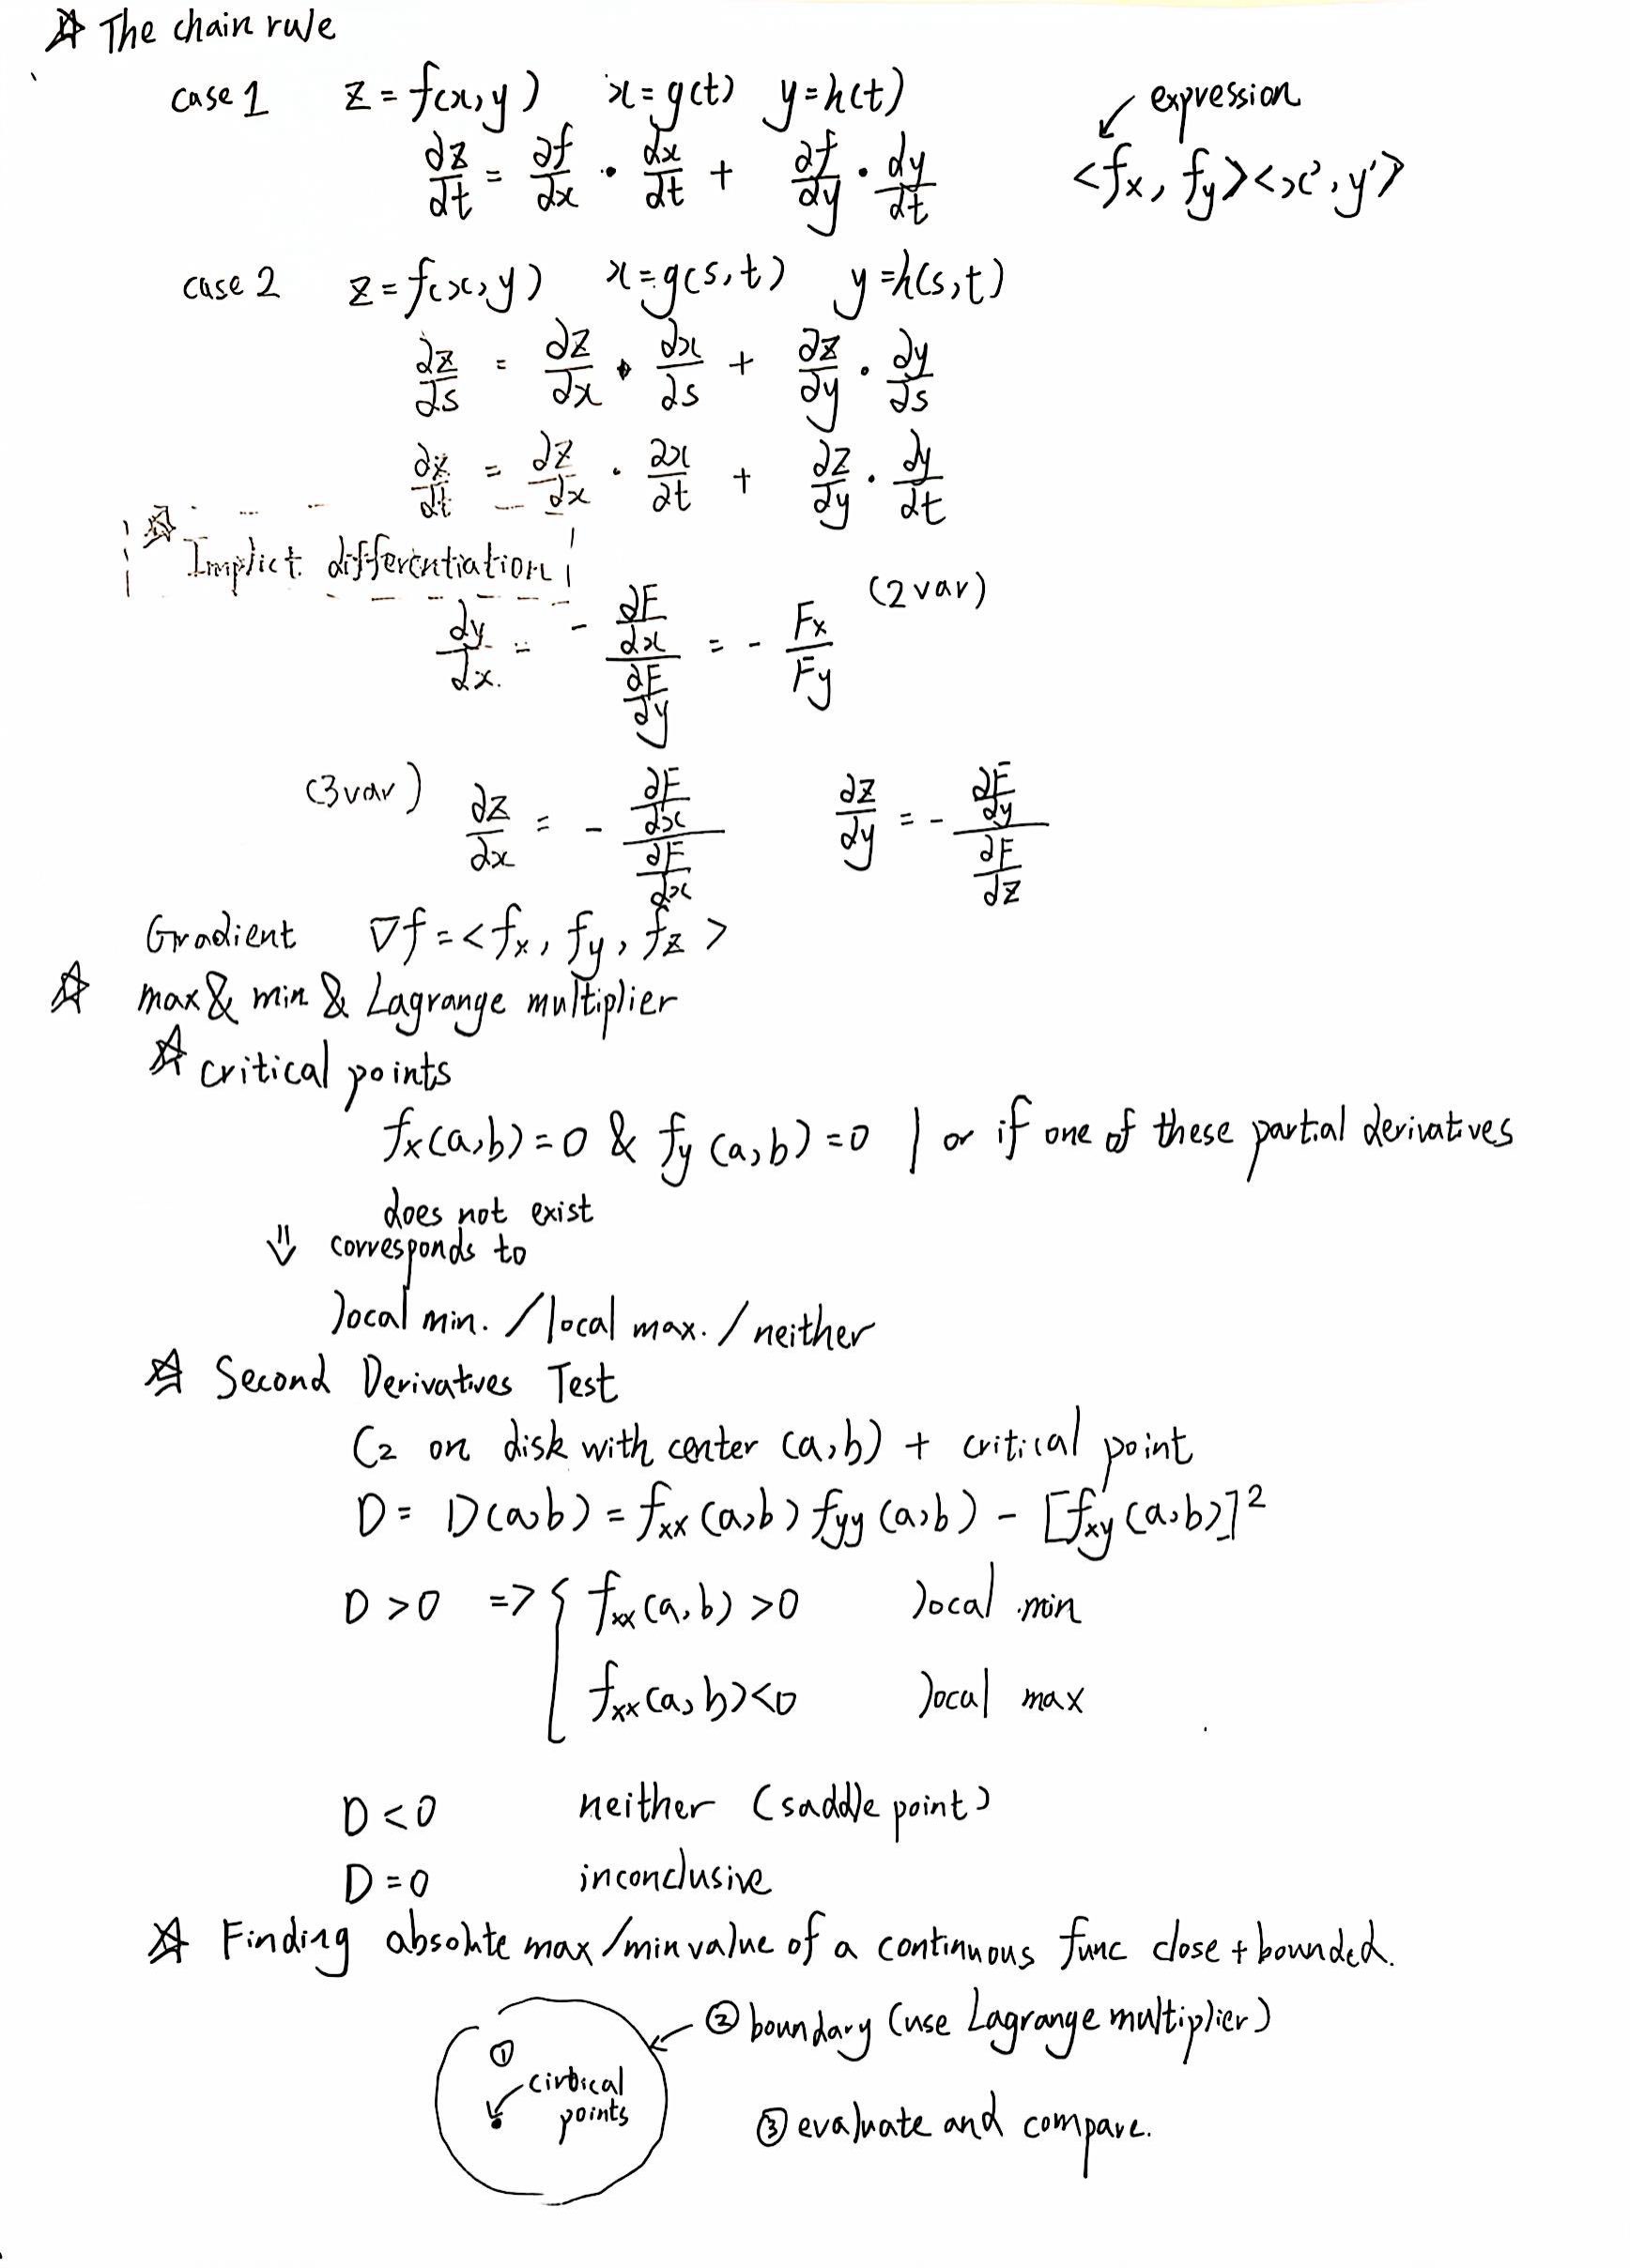 ☆ The chain rule
case 1 z = f(x,y) x = g(t) y = h(t) ↙ expression
∂z/dt = ∂f/dx · dx/dt + ∂f/dy · dy/dt <fx, fy><x', y'>
case 2 z = f(x,y) x = g(s,t) y = h(s,t)
∂z/∂s = ∂z/∂x · ∂x/∂s + ∂z/∂y · ∂y/∂s
∂z/∂t = ∂z/∂x · ∂x/∂t + ∂z/∂y · ∂y/∂t
☆ Implict differentiation
dy/dx = - (∂F/∂x)/(∂F/∂y) = - Fx/Fy (2var)
(3var) ∂z/∂x = - (∂F/∂x)/(∂F/∂x) ∂z/∂y = - (∂F/∂y)/(∂F/∂z)
Gradient ∇f = <fx, fy, fz>
☆ max & min & Lagrange multiplier
☆ critical points
fx(a,b) = 0 & fy(a,b) = 0 | or if one of these partial derivatives
does not exist
⇓ corresponds to
local min. / local max. / neither
☆ Second Derivatives Test
C2 on disk with center (a,b) + critical point
D = D(a,b) = fxx(a,b) fyy(a,b) - [fxy(a,b)]²
D > 0 => { fxx(a,b) > 0 local min
fxx(a,b) < 0 local max
D < 0 neither (saddle point)
D = 0 inconclusive
☆ Finding absolute max/min value of a continuous func close + bounded.
② boundary (use Lagrange multiplier)
①
cirtical
points
③ evaluate and compare.